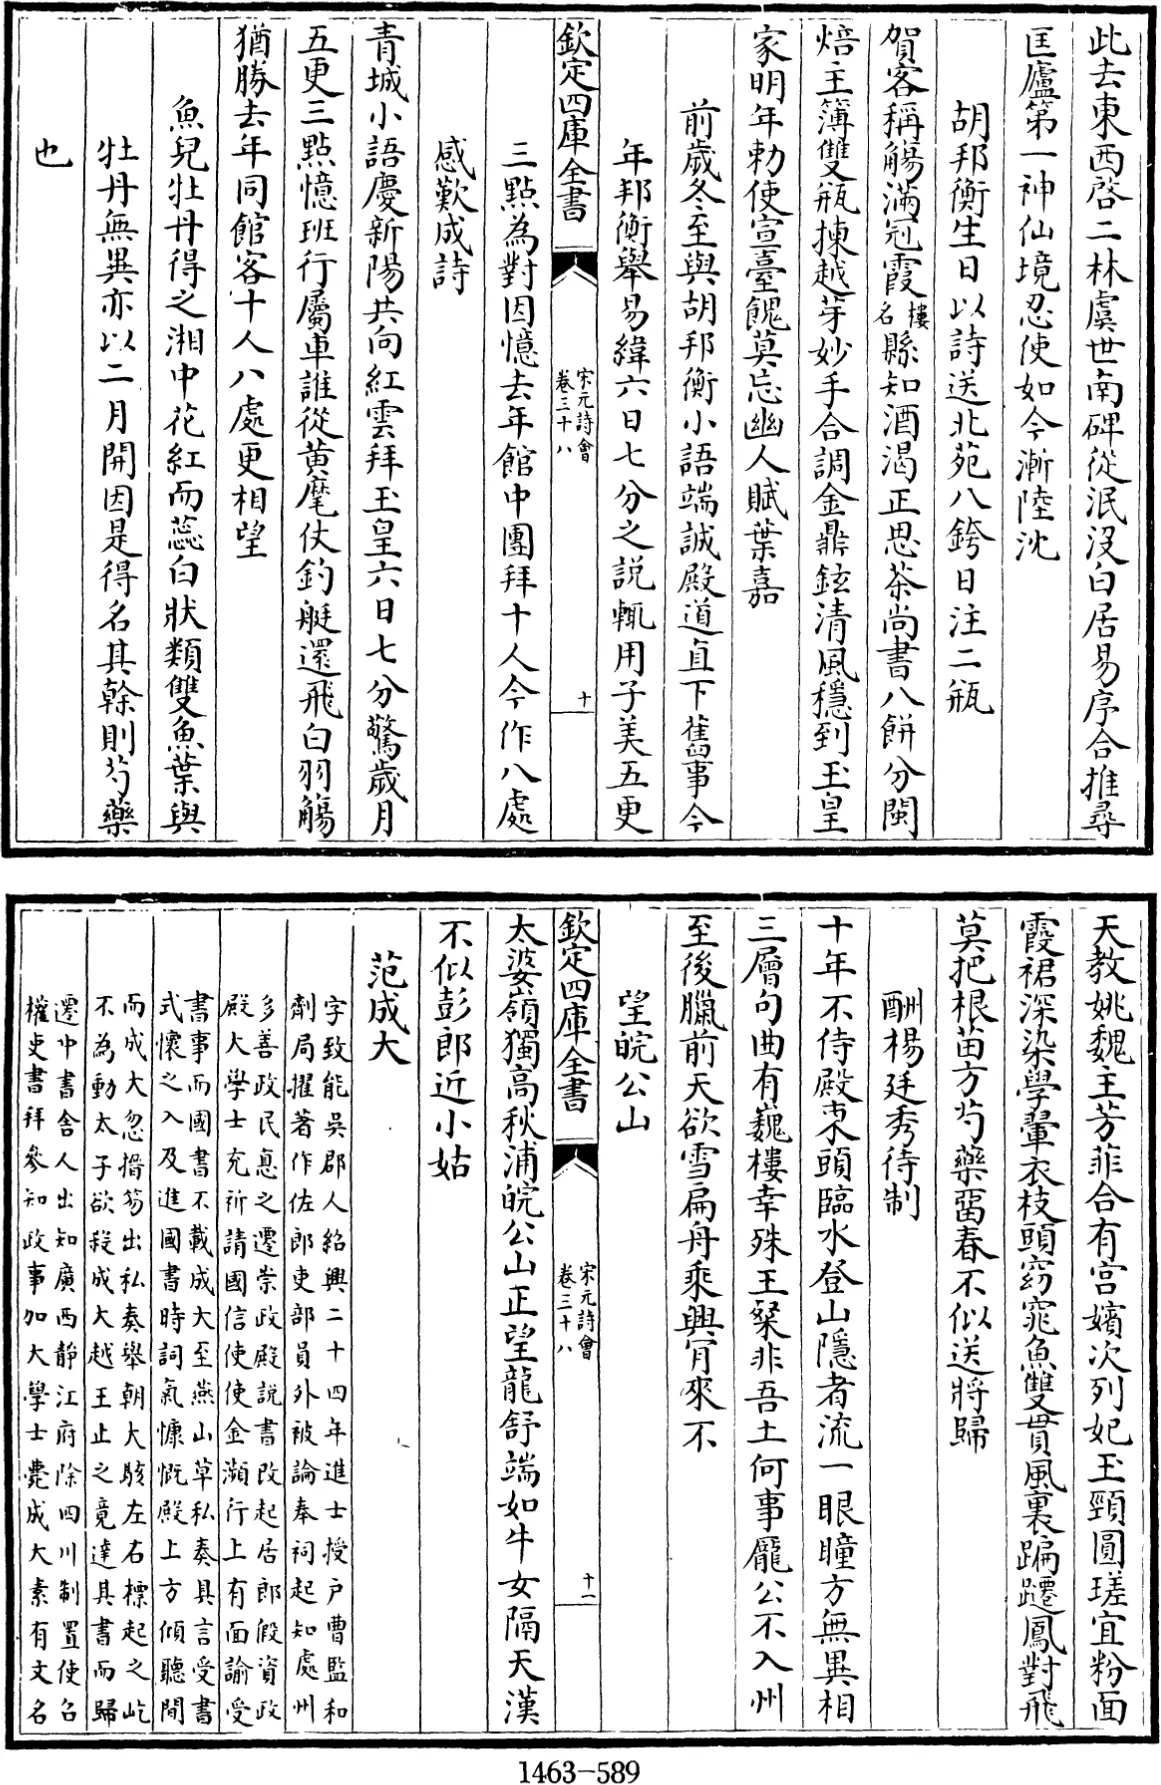 此去東西啓二林虞世南碑從泯沒白居易序合推尋
匡廬第一神仙境忍使如今漸陸沈
胡邦衡生日以詩送北苑八銙日注二瓶
賀客稱觴滿冠霞樓名懸知酒渴正思茶尚書八餅分閩
焙主簿雙瓶揀越芽妙手合調金鼎鉉清風穩到玉皇
家明年勅使宣臺餽莫忘幽人賦葉嘉
前歲冬至與胡邦衡小語端誠殿道直下舊事今
年邦衡舉易緯六日七分之説輒用子美五更
欽定四庫全書
宋元詩會
卷三十八
十
三點為對因憶去年館中團拜十人今作八處
感歎成詩
青城小語慶新陽共向紅雲拜玉皇六日七分驚歲月
五更三點憶班行屬車誰從黄麾仗釣艇還飛白羽觴
猶勝去年同館客十人八處更相望
魚兒牡丹得之湘中花紅而蕊白狀類雙魚葉與
牡丹無異亦以二月開因是得名其榦則芍藥
也
天教姚魏主芳菲合有宫嬪次列妃玉頸圓瑳宜粉面
霞裙深染學翬衣枝頭窈窕魚雙貫風裏蹁躚鳳對飛
莫把根苗方芍藥留春不似送將歸
酬楊廷秀待制
十年不侍殿東頭臨水登山隱者流一眼瞳方無異相
三層句曲有巍樓幸殊王粲非吾土何事龐公不入州
至後臘前天欲雪扁舟乘興肎來不
望皖公山
欽定四庫全書
宋元詩會
卷三十八
十一
太婆嶺獨高秋浦皖公山正望龍舒端如牛女隔天漢
不似彭郎近小姑
范成大
字致能吳郡人紹興二十四年進士授户曹監和
劑局擢著作佐郎吏部員外被論奉祠起知處州
多善政民恵之遷崇政殿説書改起居郎假資政
殿大學士充祈請國信使使金瀕行上有面諭受
書事而國書不載成大至燕山草私奏具言受書
式懷之入及進國書時詞氣慷慨殿上方傾聽間
而成大忽搢笏出私奏舉朝大駭左右標起之屹
不為動太子欲殺成大越王止之竟達其書而歸
遷中書舍人出知廣西静江府除四川制置使召
權吏書拜參知政事加大學士薨成大素有文名
1463-589